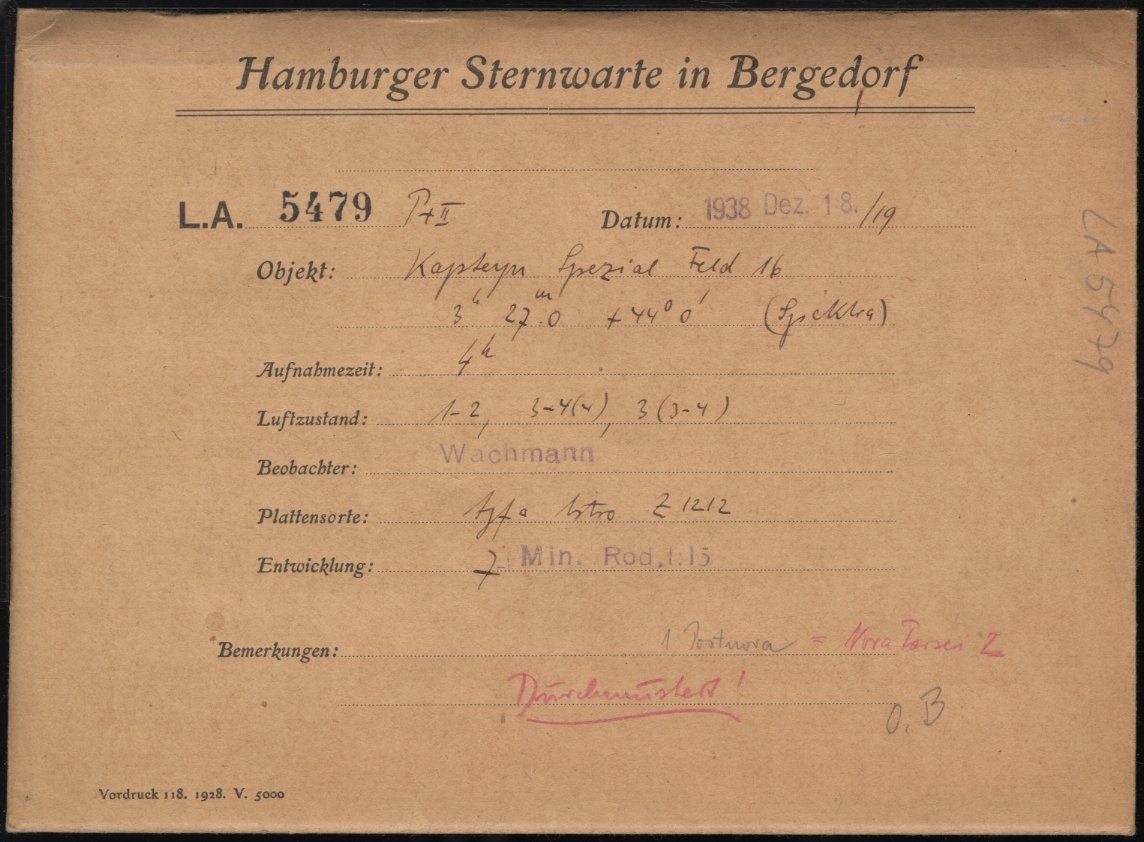 Hamburger Sternwarte in Bergedorf
L.A. 5479 P+II Datum: 1938 Dez. 18./19
Objekt: Kapteyn Spezial Feld 16
3h 27m.0 +44° 0' (Spektra)
Aufnahmezeit: 4h
Luftzustand: 1-2, 3-4(4), 3(3-4)
Beobachter: Wachmann
Plattensorte: Agfa Astro Z 1212
Entwicklung: 7 Min. Rod. 1:15
Bemerkungen: 1 = Nova Persei
Durchmustert!
O.B
Vordruck 118. 1928. V. 5000
LA 5479